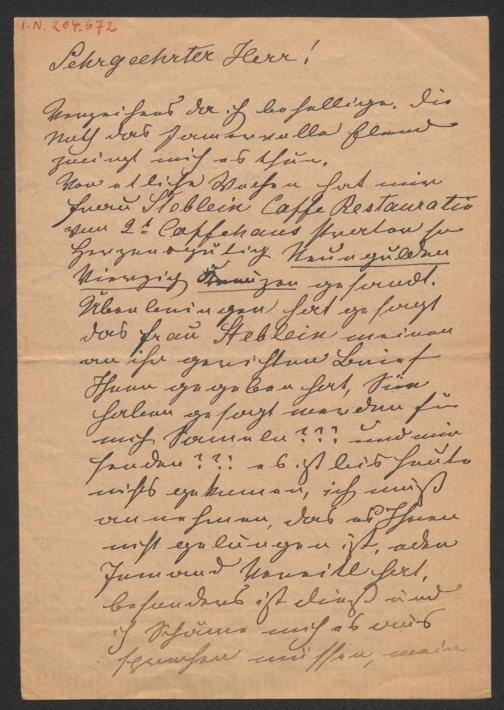 I.N. 204.672
Sehrgeehrter Herr!
Verzeihens da ich behellige. Die
Noth das Jamervolle Elend
zwingt mich es thun.
Vor etliche Wochen hat mir
Frau Steblein Caffe Restauratio
vom 2t Caffehaus Prater so
Herzensgütig Neungulden
Vierzig Kreuzer gesandt.
Überbringer hat gesagt
das Frau Steblein meinen
an ihr gerichten Brief
Ihnen gegeben hat, Sie
haben gesagt werden für
mich Sameln??? und mir
senden??? es ist bis heute
nichts gekomen, ich muß
annehmen, das es Ihnen
nicht gelungen ist, oder
Jemand Vereitl hat,
besonders ist dieß und
ich Schäme mich es aus
sprechen müssen, mein